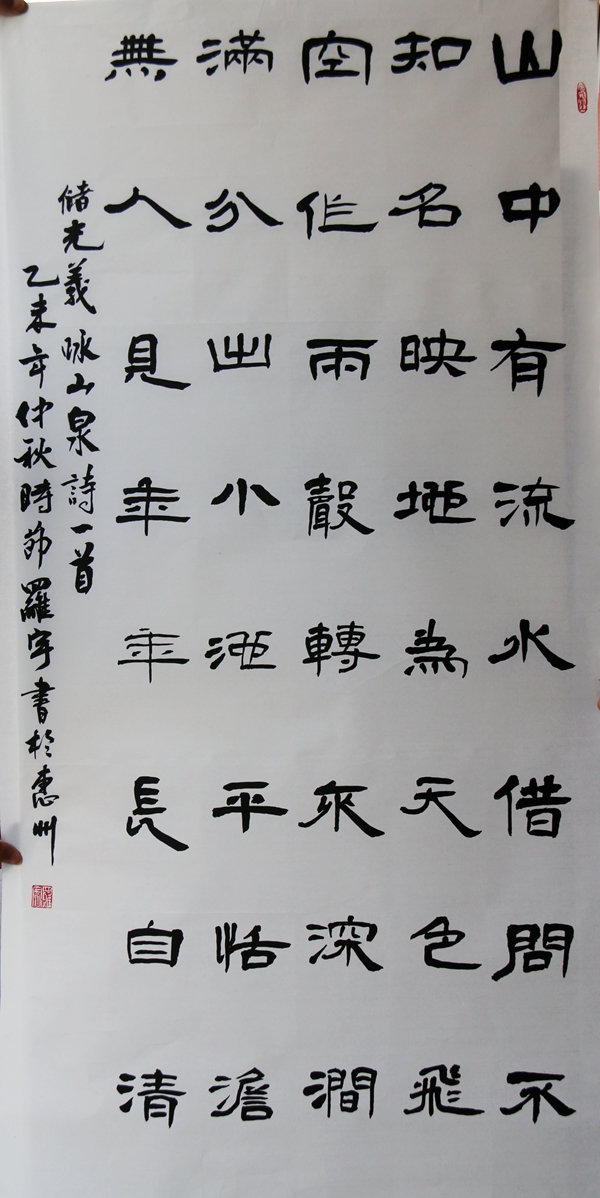 山中有流水借問不
知名映地為天色飛
空作雨聲轉來深澗
滿分出小池平恬澹
無人見年年長自清
儲光義咏山泉詩一首
乙未年仲秋時節羅宇書於惠州